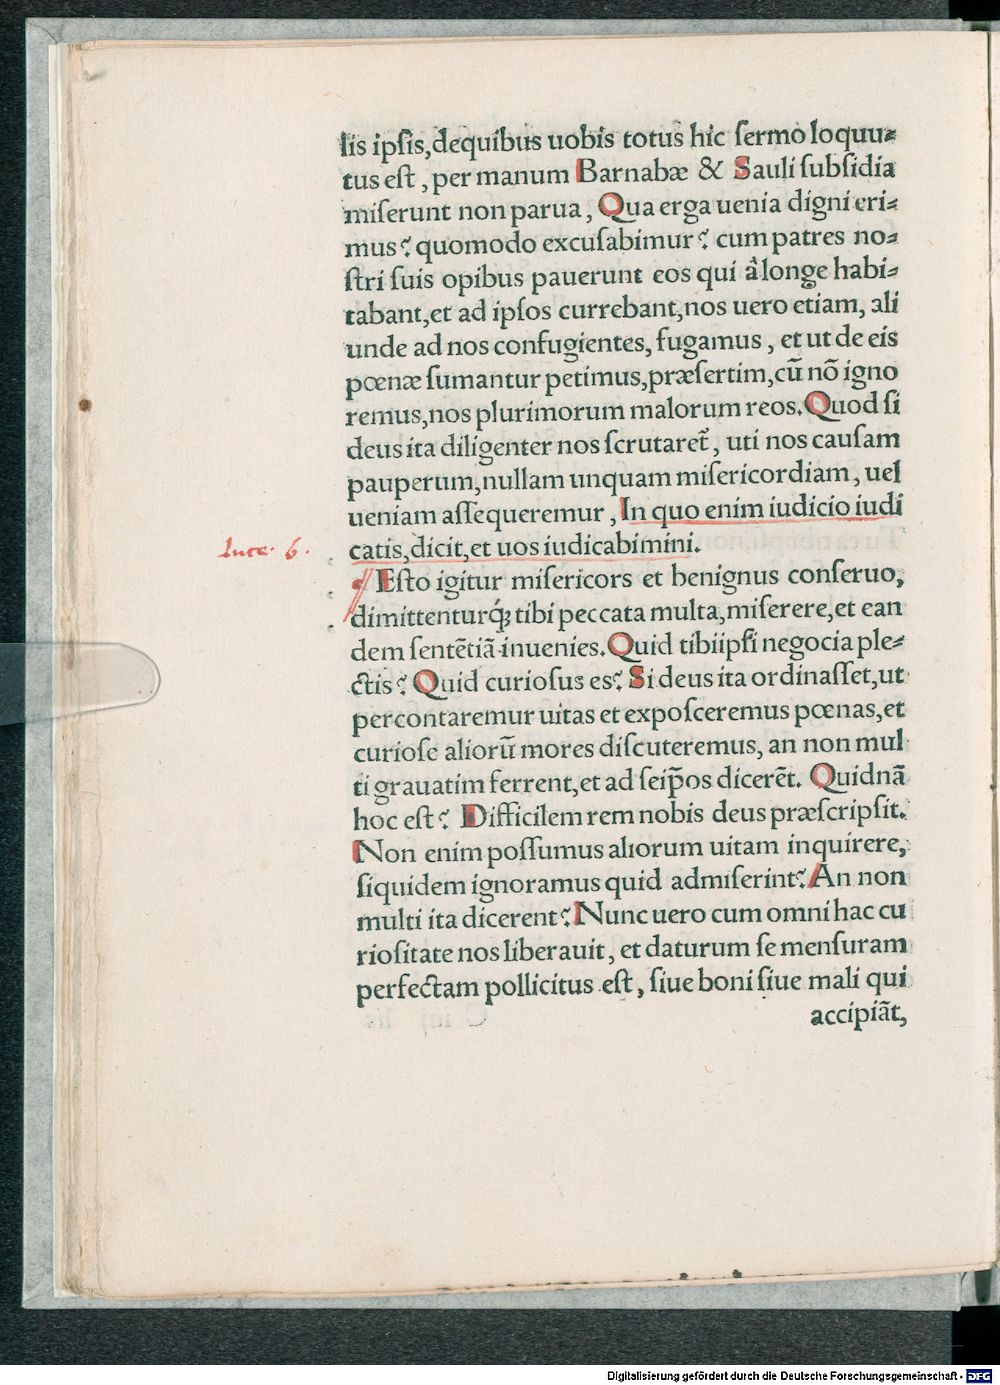 lis ipſis, dequibus uobis totus hic ſermo loquu⸗
tus eſt, per manum Barnabæ & Sauli ſubſidia
miſerunt non parua, Qua erga uenia digni eri⸗
mus? quomodo excuſabimur? cum patres no⸗
ſtri ſuis opibus pauerunt eos qui â longe habi⸗
tabant, et ad ipſos currebant, nos uero etiam, ali
unde ad nos confugientes, fugamus, et ut de eis
pœnæ ſumantur petimus, præſertim, cū nō igno
remus, nos plurimorum malorum reos. Quod ſi
deus ita diligenter nos ſcrutaret̃, uti nos cauſam
pauperum, nullam unquam miſericordiam, uel
ueniam aſſequeremur, In quo enim iudicio iudi
Luce. 6.
catis, dicit, et uos iudicabimini.
Eſto igitur miſericors et benignus conſeruo,
dimittenturq́ꝫ tibi peccata multa, miſerere, et ean
dem ſentētiā inuenies. Quid tibiipſi negocia ple⸗
ctis? Quid curioſus es? Si deus ita ordinaſſet, ut
percontaremur uitas et expoſceremus pœnas, et
curioſe aliorū mores diſcuteremus, an non mul
ti grauatim ferrent, et ad ſeip̄os dicerēt. Quidnā
hoc eſt? Difficilem rem nobis deus præſcripſit.
Non enim poſſumus aliorum uitam inquirere,
ſiquidem ignoramus quid admiſerint? An non
multi ita dicerent? Nunc uero cum omni hac cu
rioſitate nos liberauit, et daturum ſe menſuram
perfectam pollicitus eſt, ſiue boni ſiue mali qui
accipiāt,
Digitalisierung gefördert durch die Deutsche Forschungsgemeinschaft - DFG